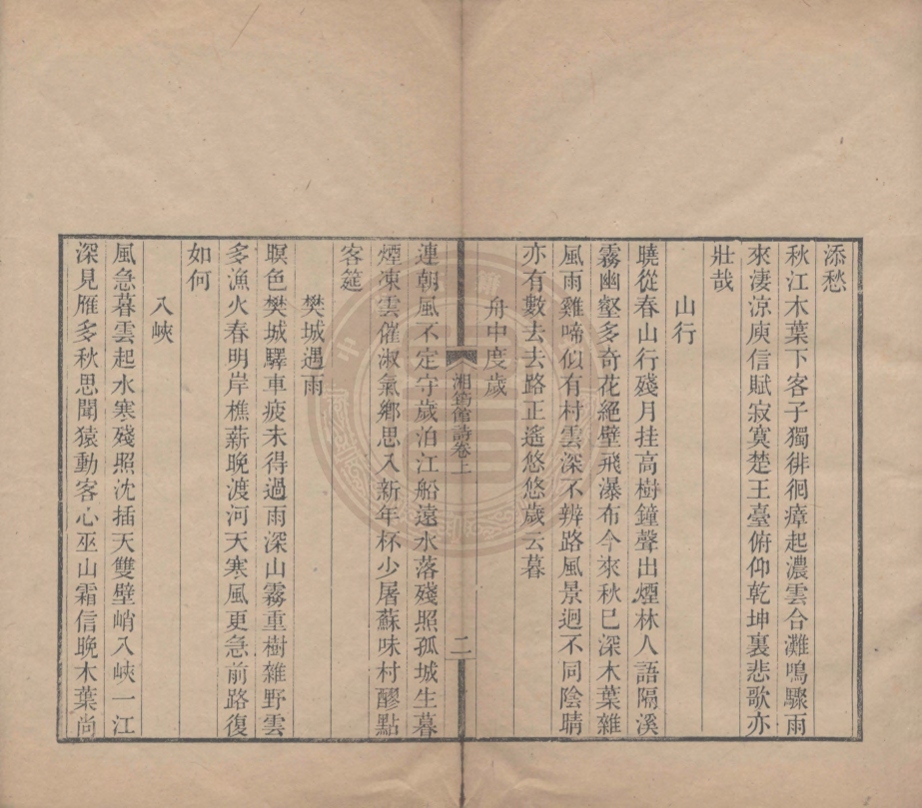 添愁
秋江木葉下客子獨徘徊瘴起濃雲合灘鳴驟雨
來淒涼庾信賦寂寞楚王臺俯仰乾坤裏悲歌亦
壯哉
山行
曉從春山行殘月挂高樹鐘聲出煙林人語隔溪
霧幽壑多奇花絕壁飛瀑布今來秋已深木葉雜
風雨雞啼似有村雲深不辨路風景迥不同陰晴
亦有數去去路正遙悠悠歲云暮
舟中度歲
湘筠館詩卷上
二
連朝風不定守歲泊江船遠水落殘照孤城生暮
煙凍雲催淑氣鄉思入新年杯少屠蘇味村醪點
客筵
樊城遇雨
暝色樊城驛車疲未得過雨深山霧重樹雜野雲
多漁火春明岸樵薪晚渡河天寒風更急前路復
如何
入峽
風急暮雲起水寒殘照沈插天雙壁峭入峽一江
深見雁多秋思聞猿動客心巫山霜信晚木葉尚